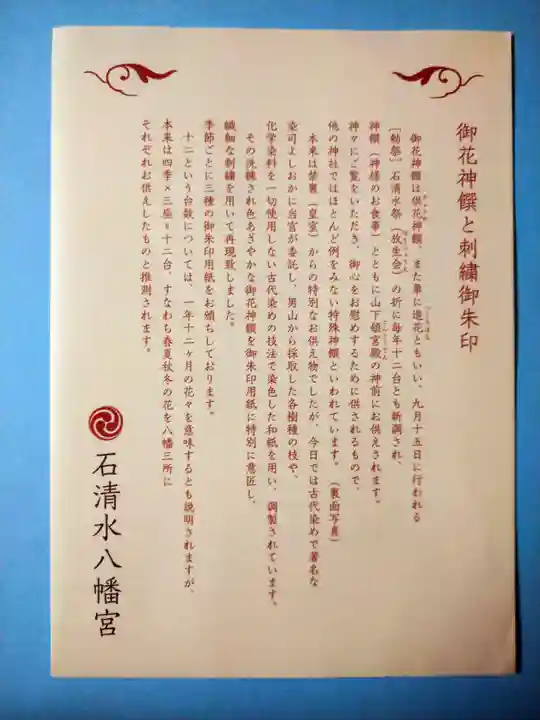 御花神饌と刺繍御朱印
御花神饌は供花神饌、また単に造花ともいい、九月十五日に行われる
［勅祭］石清水祭（放生会）の折に毎年十二台とも新調され、
神饌（神様のお食事）とともに山下頓宮殿の神前にお供えされます。
神々にご覧をいただき、御心をお慰めするために供されるもので、
他の神社ではほとんど例をみない特殊神饌といわれています。（裏面写真）
本来は禁裏（皇室）からの特別なお供え物でしたが、今日では古代染めで著名な
染司よしおかに当宮が委託し、男山から採取した各樹種の枝や、
化学染料を一切使用しない古代染めの技法で染色した和紙を用い、調製されています。
その洗練され色あざやかな御花神饌を御朱印用紙に特別に意匠し、
繊細な刺繍を用いて再現致しました。
季節ごとに三種の御朱印用紙をお頒ちしております。
十二という台数については、一年十二ヶ月の花々を意味するとも説明されますが、
本来は四季×三座＝十二台、すなわち春夏秋冬の花を八幡三所に
それぞれお供えしたものと推測されます。
石清水八幡宮